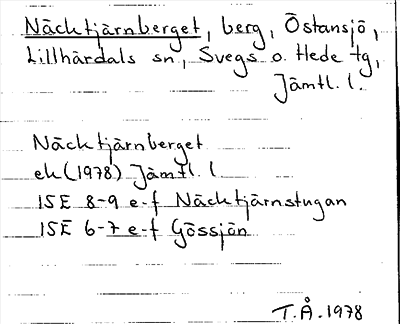 Näcktjärnberget, berg, Östansjö,
Lillhärdals sn, Svegs o. Hede tg,
Jämtl. l.
Näcktjärnberget
ek (1978) Jämtl. l
15E 8-9 e-f Näcktjärnstugan
15E 6-7 e-f Gössjön
T.Å. 1978